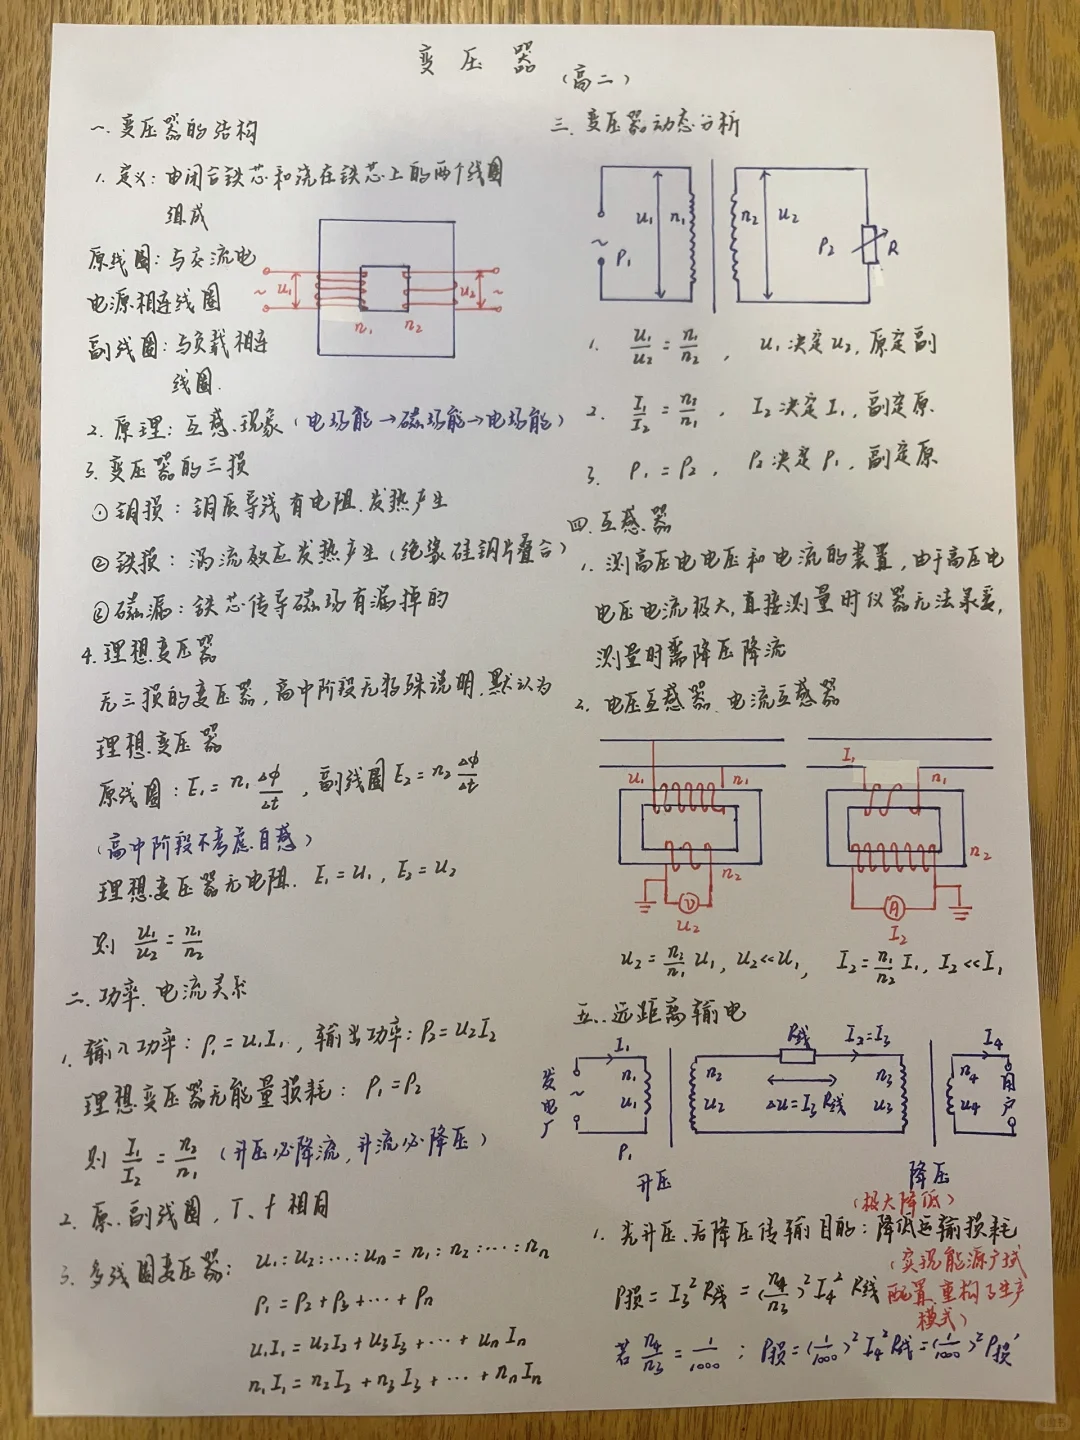 变压器
(高二)
一、变压器的结构
1. 定义：由闭合铁芯和绕在铁芯上的两个线圈
组成
原线圈：与交流电
电源相连线圈
副线圈：与负载相连
线圈.
~ u₁ n₁ n₂ u₂ ~
2. 原理：互感现象（电场能→磁场能→电场能）
3. 变压器的三损
①铜损：铜质导线有电阻.发热产生
②铁损：涡流效应发热产生（绝缘硅钢片叠合）
③磁漏：铁芯传导磁场有漏掉的
4. 理想变压器
无三损的变压器，高中阶段无特殊说明.默认为
理想变压器
原线圈：E₁=n₁ΔΦ/Δt，副线圈E₂=n₂ΔΦ/Δt
（高中阶段不考虑自感）
理想变压器无电阻. E₁=u₁，E₂=u₂
则 u₁/u₂=n₁/n₂
二、功率、电流关系
1. 输入功率：P₁=u₁I₁，输出功率：P₂=u₂I₂
理想变压器无能量损耗：P₁=P₂
则 I₁/I₂=n₂/n₁（升压必降流，升流必降压）
2. 原、副线圈，T、f相同
3. 多线圈变压器：u₁:u₂:…:uₙ=n₁:n₂:…:nₙ
P₁=P₂+P₃+…+Pₙ
u₁I₁=u₂I₂+u₃I₃+…+uₙIₙ
n₁I₁=n₂I₂+n₃I₃+…+nₙIₙ
三、变压器动态分析
~ P₁ u₁ n₁ n₂ u₂ P₂ R
1. u₁/u₂=n₁/n₂，u₁决定u₂，原定副
2. I₁/I₂=n₂/n₁，I₂决定I₁，副定原.
3. P₁=P₂，P₂决定P₁，副定原
四、互感器
1. 测高压电电压和电流的装置，由于高压电
电压电流极大，直接测量时仪器无法承受，
测量时需降压降流
2. 电压互感器、电流互感器
u₁ n₁ n₂ V u₂
I₁ n₁ n₂ A I₂
u₂=n₂/n₁u₁，u₂<<u₁，I₂=n₁/n₂I₁，I₂<<I₁
五、远距离输电
发电厂 ~ I₁ n₁ u₁ P₁
n₂ u₂ R线 I₂=I₃ ΔU=I₃R线 n₃ u₃
I₄ n₄ u₄ 用户
升压 降压
（极大降低）
1. 先升压、后降压传输目的：降低运输损耗
（实现能源广域
配置.重构了生产
模式）
P损=I₃²R线=(n₄/n₃)²I₄²R线
若 n₄/n₃=1/1000；P损=(1/1000)²I₄²R线=(1/1000)²P损'